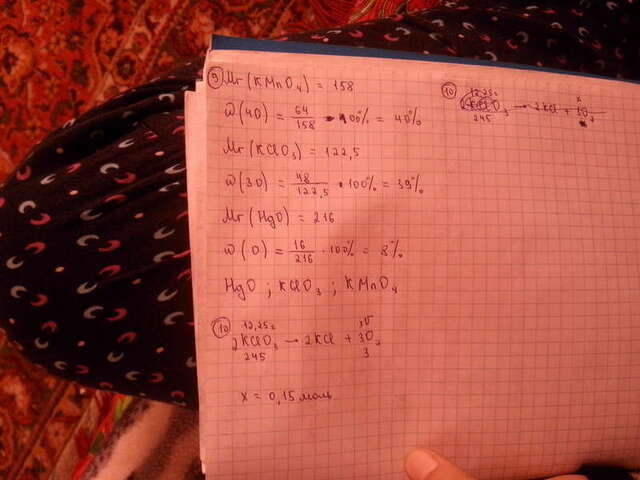 ⑨ Mr(KMnO₄) = 158
ω(4O) = 64/158 · 100% = 40%
Mr(KClO₃) = 122,5
ω(3O) = 48/122,5 · 100% = 39%
Mr(HgO) = 216
ω(O) = 16/216 · 100% = 8%
HgO ; KClO₃ ; KMnO₄
⑩ 12,25г x
2KClO₃ → 2KCl + 3O₂
245 3
x = 0,15 моль
⑩ 12,25г x
→ 2KCl + 3O₂
245